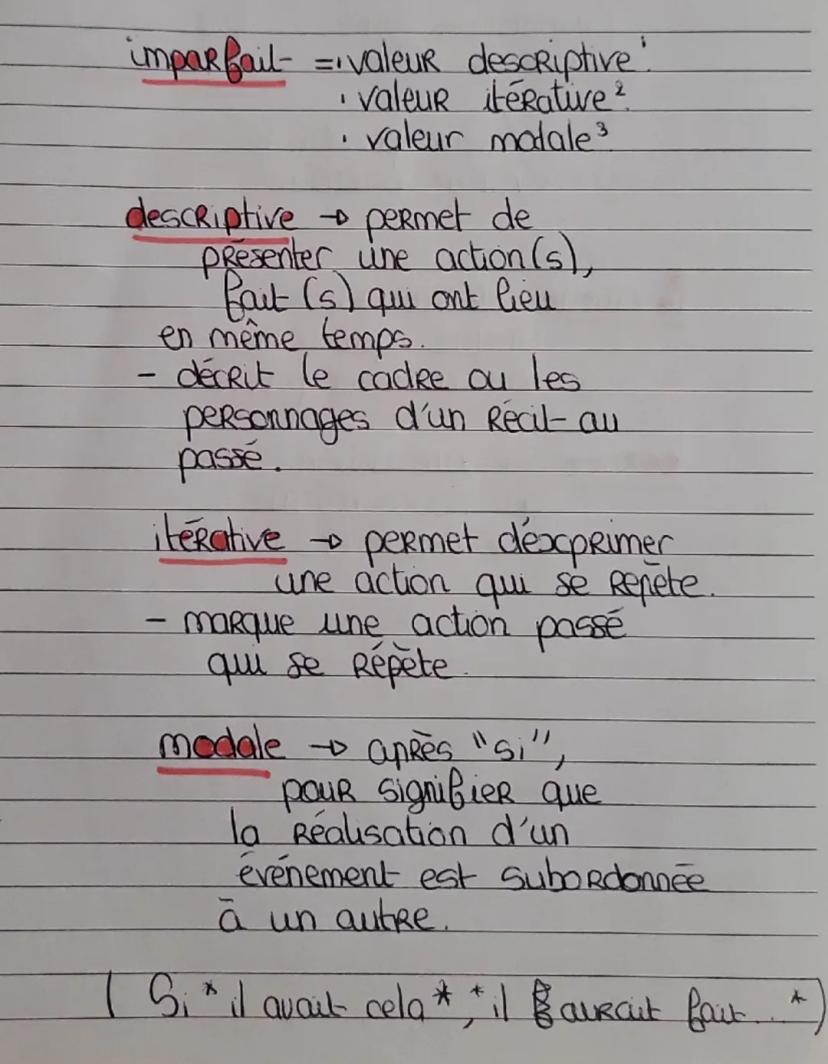 imparfait = · valeur descriptive¹
· valeur itérative²
· valeur modale³
descriptive → permet de
présenter une action(s),
fait (s) qui ont lieu
en même temps.
- décrit le cadre ou les
personnages d'un récit au
passé.
itérative → permet d'éxprimer
une action qui se repète.
- marque une action passé
qui se répète.
modale → après "si",
pour signifier que
la réalisation d'un
événement est subordonnée
à un autre.
( Si* il avait cela*, *il aurait fait...*)